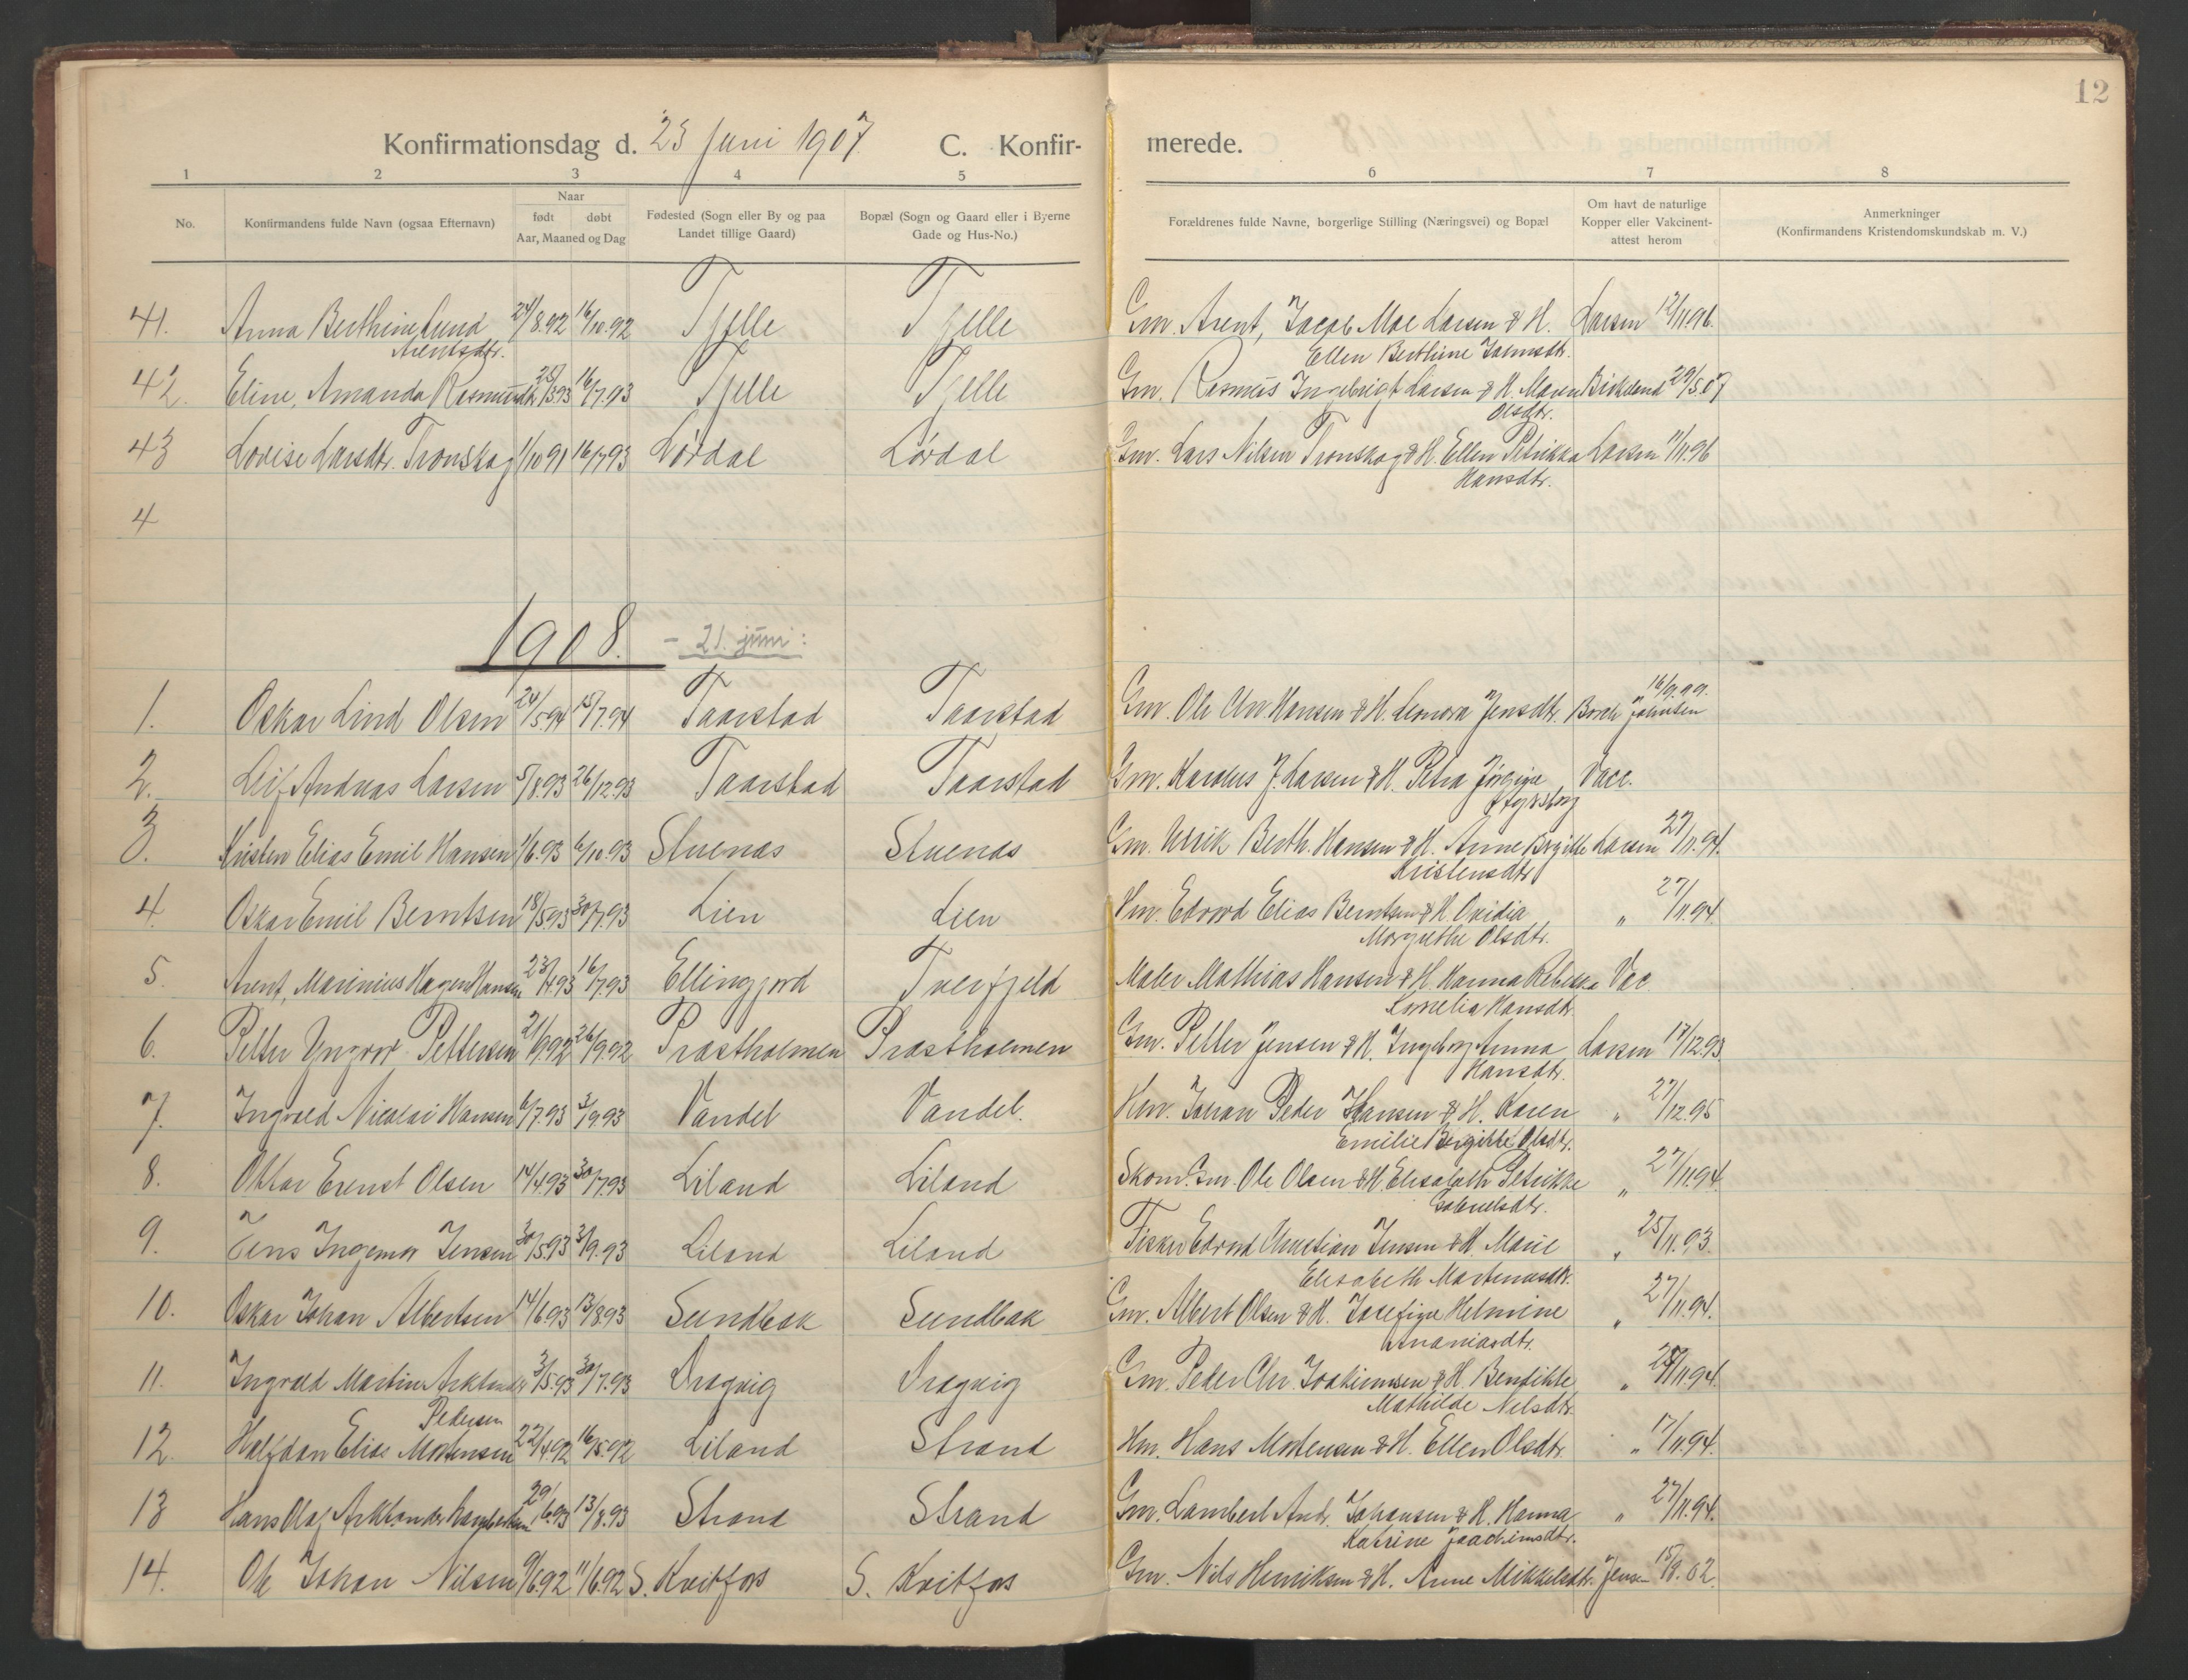 12
Konfirmationsdag d. 23 Juni 1907. C. Konfir- merede.
1 2 3 4 5 6 7 8
No. Konfirmandens fulde Navn (ogsaa Efternavn) Naar født døbt Aar, Maaned og Dag Fødested (Sogn eller By og paa Landet tillige Gaard) Bopæl (Sogn og Gaard eller i Byerne Gade og Hus-No.) Forældrenes fulde Navne, borgerlige Stilling (Næringsvei) og Bopæl Om havt de naturlige Kopper eller Vakcinent- attest herom Anmerkninger (Konfirmandens Kristendomskundskab m. V.)
41. Anna Berthine Lund 24/8.92 16/10.92 Tjelle Tjelle Gm. Arent, Jacob Moe Larsen & H. Larsen 12/11.96.
Arentsdtr. Ellen Berthine Joensdtr.
42. Eline, Amanda Rasmusdtr 25/3.93 16/7.93 Tjelle Tjelle Gm. Rasmus Ingebrigt Larsen & H. Maren 29/5.07
Olsdtr.
43 Lovise Larsdtr. Tronskag 1/10 91 16/7 93 Lørdal Lørdal Gm. Lars Nilsen Tronskag & H. Ellen Petrikka Larsen 11/11.96
Hansdtr.
4
1908. - 21. juni:
1. Oskar Lind Olsen 24/5.94 15/7.94 Taarstad Taarstad Gm. Ole Chr. Hansen & H. Leonora Jensdtr. 16/9.99.
2. Leif Andreas Larsen 5/8.93 26/12.93 Taarstad Taarstad Gm. Karolus J. Larsen & H. Petra Jørgine Vacc.
3. Kristen Elias Emil Hansen 1/6.93 6/10.93 Stuenes Stuenes Gm. Ulrik Berth. Hansen & H. Anne Birgitte Larsen 27/11.94.
Kristensdtr
4. Oskar Emil Berntsen 18/5.93 30/7.93 Lien Lien Hm. Edvard Elias Berntsen & H. Ovidia " 27/11.94.
Margrethe Olsdtr.
5. Arent, Marinius Hagen Hansen 23/4.93 16/7.93 Ellingjord Tverfjeld Maler Mathias Hansen & H. Hanna Rebekka Vac.
Kornelia Hansdtr.
6. Petter Yngvar Pettersen 21/7.92 26/9.92 Præstholmen Præstholmen Gm. Petter Jensen & H. Ingeborg Anna Larsen 17/12.93.
Hansdtr.
7. Ingvald Nicolai Hansen 6/7.93 3/9.93 Vandel Vandel. Hm. Johan Peder Hansen & H. Karen " 27/12.95
Emilie Bergitte Olsdtr.
8. Ottar Ernst Olsen 14/4.93 30/7.93 Liland Liland Skom. Gm. Ole Olsen & H. Elisabeth Petrikke " 27/11.94.
Gabrielsdtr.
9. Jens Ingemar Jensen 30/5.93 3/9.93 Liland Liland Fisker Edvard Christian Jensen & H. Marie " 25/11.93.
Elisabeth Martinusdtr.
10. Oskar Johan Albertsen 14/6.93 13/8.93 Sundbak Sundbak Gm. Albert Olsen & H. Josefine Helmine " 27/11.94.
Ananiasdtr.
11. Ingvald Martin Arktander 3/5.93 30/7.93 Dragvig Dragvig Gm. Peder Chr. Joakimsen & H. Bendikte " 28/11.94.
Pedersen Mathilde Nilsdtr.
12. Halfdan Elias Mortensen 22/4.92 16/5.92 Liland Strand Hm. Hans Mortensen & H. Ellen Olsdtr. " 17/11.94.
13 Hans Olaf Arktander Lambertsen 29/6.93 13/8.93 Strand Strand Gm. Lambert Andr. Johansen & H. Hanna " 27/11.94.
Katrine Joachimsdtr.
14. Ole Johan Nilsen 9/6.92 11/6.92 S. Kvitfos S. Kvitfos Gm. Nils Henriksen & H. Anne Mikkelsdtr. Jensen 15/9.02.